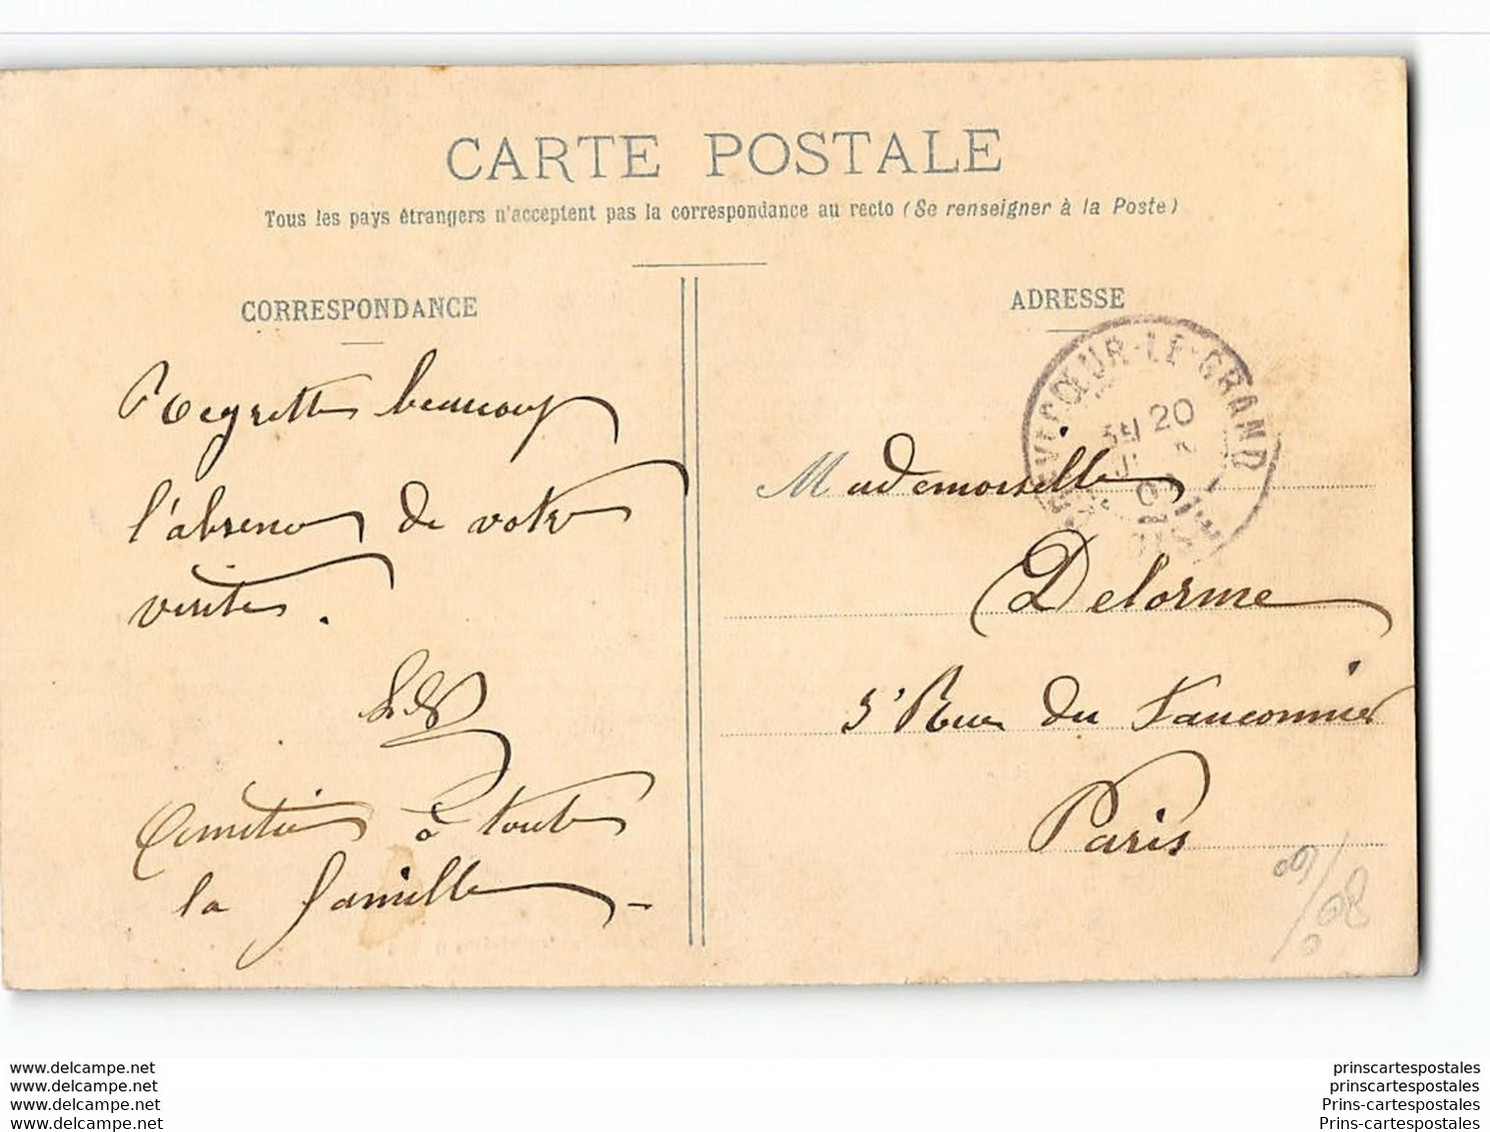 CARTE POSTALE
Tous les pays étrangers n'acceptent pas la correspondance au recto (Se renseigner à la Poste)
CORRESPONDANCE
Regrette beaucoup
l'absence de votre
visite.
Amitiés à toute
la famille –
ADRESSE
CREVECŒUR-LE-GRAND
20
OISE
Mademoiselle
Delorme
5 Rue du Fauconnier
Paris
www.delcampe.net
www.delcampe.net
www.delcampe.net
www.delcampe.net
prinscartespostales
prinscartespostales
Prins-cartespostales
Prins-cartespostales